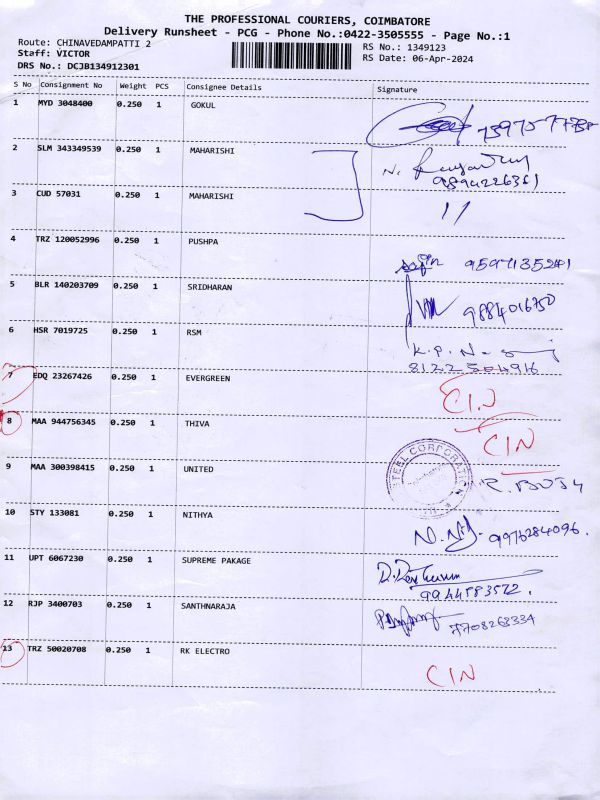 THE PROFESSIONAL COURIERS, COIMBATORE
Delivery Runsheet - PCG - Phone No.:0422-3505555 - Page No.:1
Route: CHINAVEDAMPATTI 2
RS No.: 1349123
Staff: VICTOR
RS Date: 06-Apr-2024
DRS No.: DCJB134912301
S No Consignment No Weight PCS Consignee Details Signature
1 MYD 3048400 0.250 1 GOKUL
2 SLM 343349539 0.250 1 MAHARISHI N.
9894226361
3 CUD 57031 0.250 1 MAHARISHI 11
4 TRZ 120052996 0.250 1 PUSHPA
5 BLR 140203709 0.250 1 SRIDHARAN 9884016750
6 HSR 7019725 0.250 1 RSM K.P.
8122504916
7 EDQ 23267426 0.250 1 EVERGREEN CIN
8 MAA 944756345 0.250 1 THIVA CIN
9 MAA 300398415 0.250 1 UNITED STEEL CORPORATION
10 STY 133081 0.250 1 NITHYA 9976284096.
11 UPT 6067230 0.250 1 SUPREME PAKAGE
9944583572.
12 RJP 3400703 0.250 1 SANTHNARAJA 7708263334
13 TRZ 50020708 0.250 1 RK ELECTRO CIN